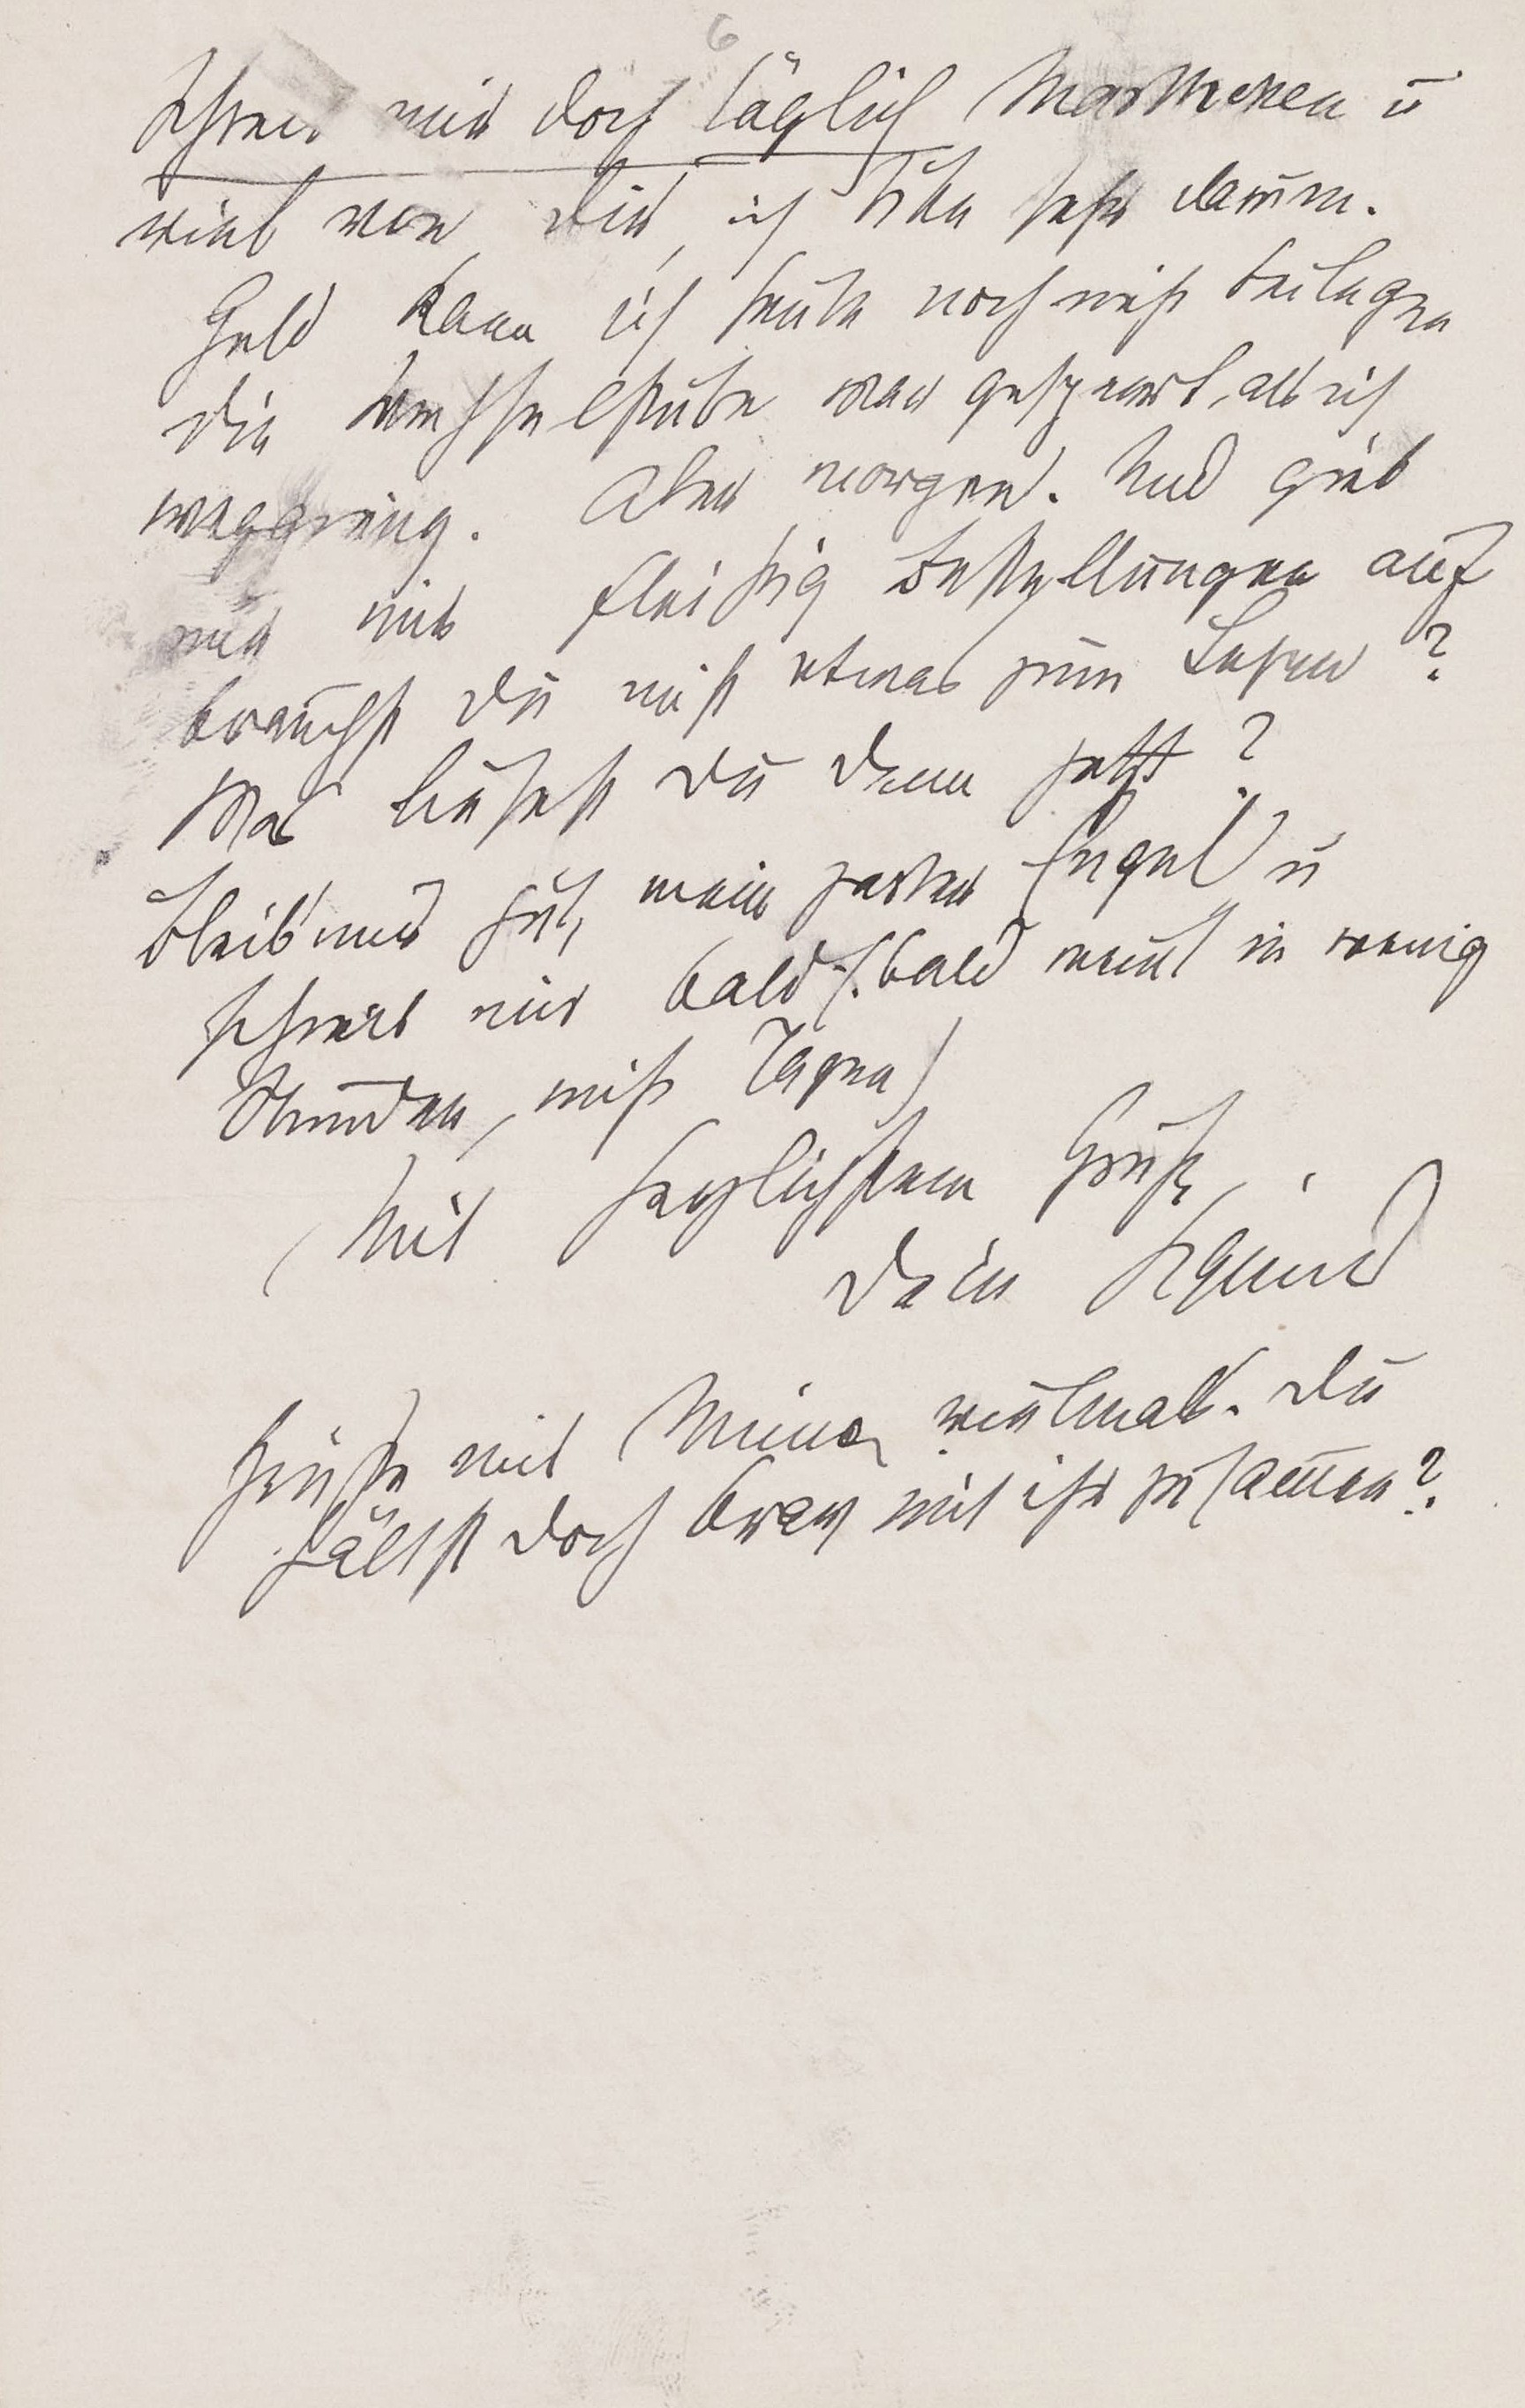 6
Schreib mir doch täglich Marthchen u
viel von Dir, ich bitte sehr darum.
Geld kann ich heute noch nicht beilegen
die Wechselstube war gesperrt, als ich
wegging. Aber morgen. Und gieb
mir nur fleißig Bestellungen auf
brauchst Du nicht etwas zum Lesen?
Was liesest Du denn jetzt?
Bleib' mir gut, mein zarter Engel u
schreib mir bald (bald meint in wenig
Stunden, nicht Tagen)
Mit herzlichstem Gruß,
Dein Sigmund
Grüße mir Minna vielmals. Du
hältst doch brav mit ihr zusammen?